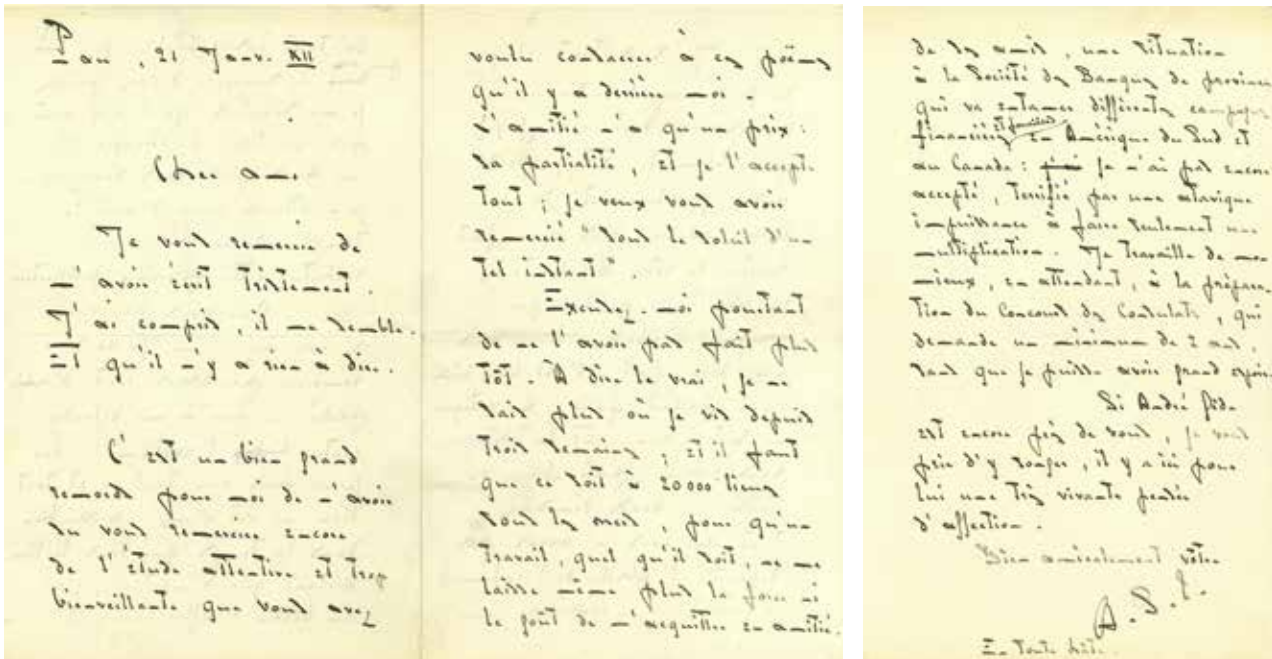 Pau, 21 Janv. XII
Cher ami
Je vous remercie de
m'avoir écrit tristement.
J'ai compris, il me semble.
Et qu'il n'y a rien à dire.
C'est un bien grand
remords pour moi de n'avoir
su vous remercier encore
de l'étude attentive et trop
bienveillante que vous avez
voulu consacrer à ces poëmes
qu'il y a derrière moi.
L'amitié n'a qu'un prix :
sa partialité, et je l'accepte
tout ; je veux vous avoir
remercié "sous le soleil d'un
tel instant".
Excusez-moi pourtant
de ne l'avoir pas fait plus
tôt. A dire le vrai, je ne
sais plus où je vis depuis
trois semaines ; et il faut
que ce soit à 20000 lieues
sous les mers, pour qu'un
travail, quel qu'il soit, ne me
laisse même plus la force ni
le goût de m'acquitter en amitié.
de ses amis, une situation
à la Société des Banques de province
qui va entamer différentes campagnes
financières et foncières en Amérique du Sud et
au Canada : j'ai je n'ai pas encore
accepté, terrifié par une atavique
impuissance à faire seulement une
multiplication. Je travaille de mon
mieux, en attendant, à la prépara-
tion du Concours des Consulats, qui
demande un minimum de 2 ans,
sans que je puisse avoir grand espoir.
Si André Gide
est encore près de vous, je vous
prie d'y songer, il y a ici pour
lui une très vivante pensée
d'affection.
Bien amicalement vôtre
A. S. L.
En toute hâte.